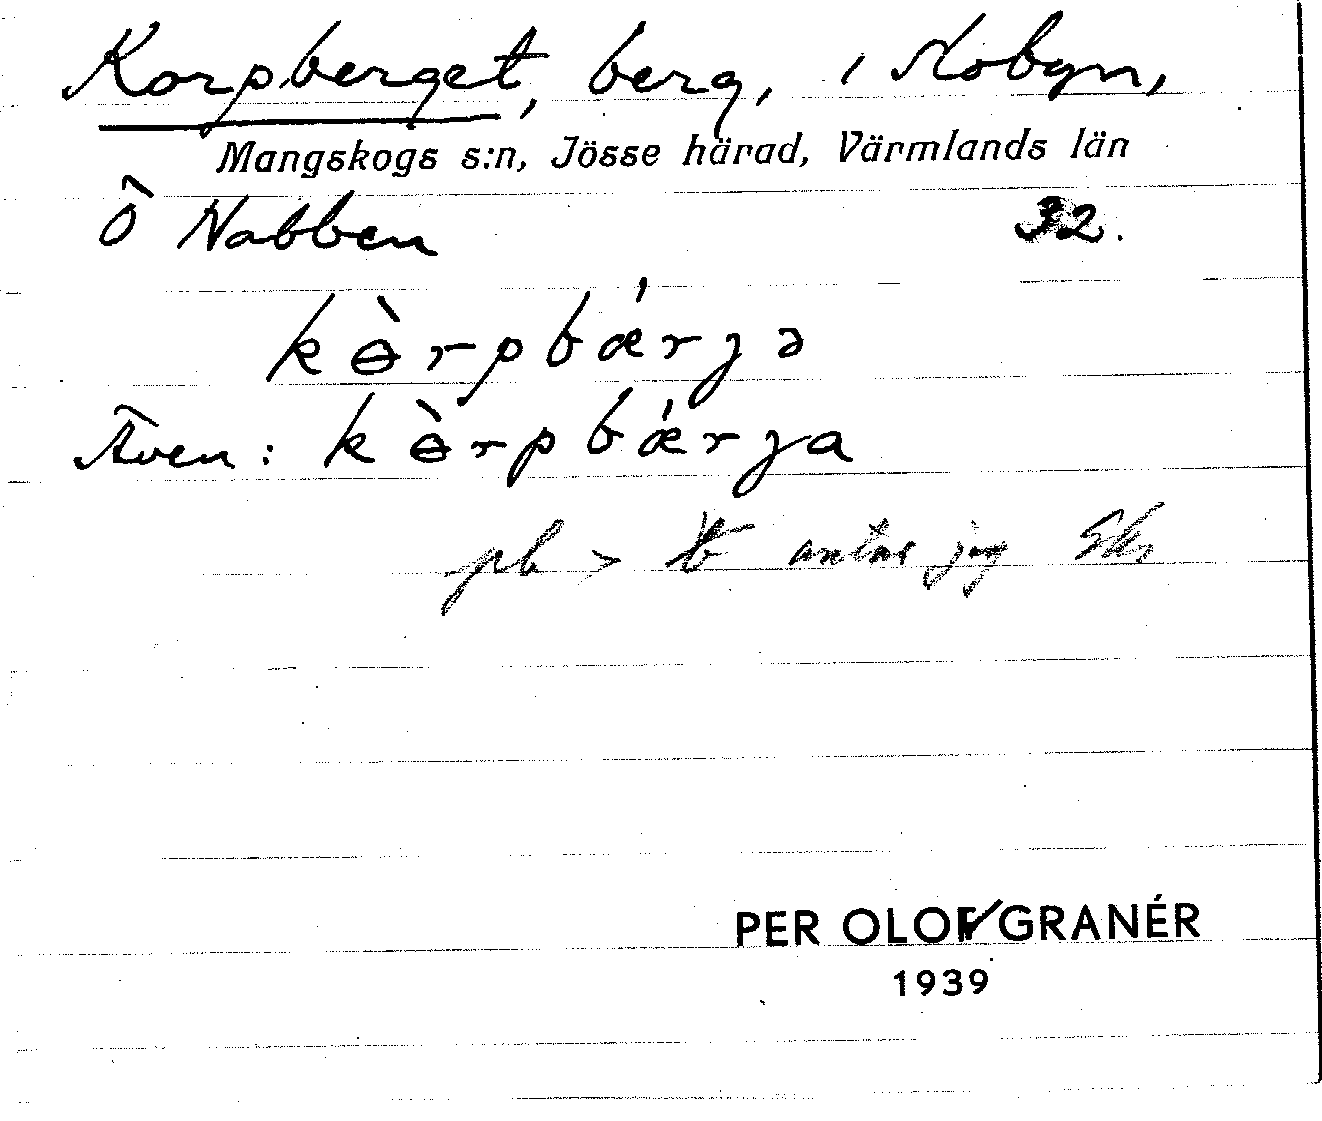 Korpberget, berg, i Nobyn,
Mangskogs s:n, Jösse härad, Värmlands län
Ö Nabben 32.
kɵ̀rpbǽrjə
Även: kɵ̀rpbǽrja
pb > antar jag
PER OLOF GRANÉR
1939